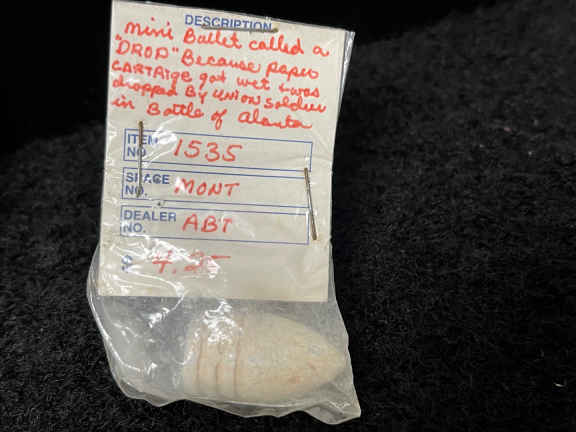 DESCRIPTION
mini Bullet called a
"DROP" Because paper
CARTRIGE got wet + was
dropped By UNION Soldier
in Battle of Alanta
ITEM NO. 1535
SPACE NO. MONT
DEALER NO. ABT
$ 4.25